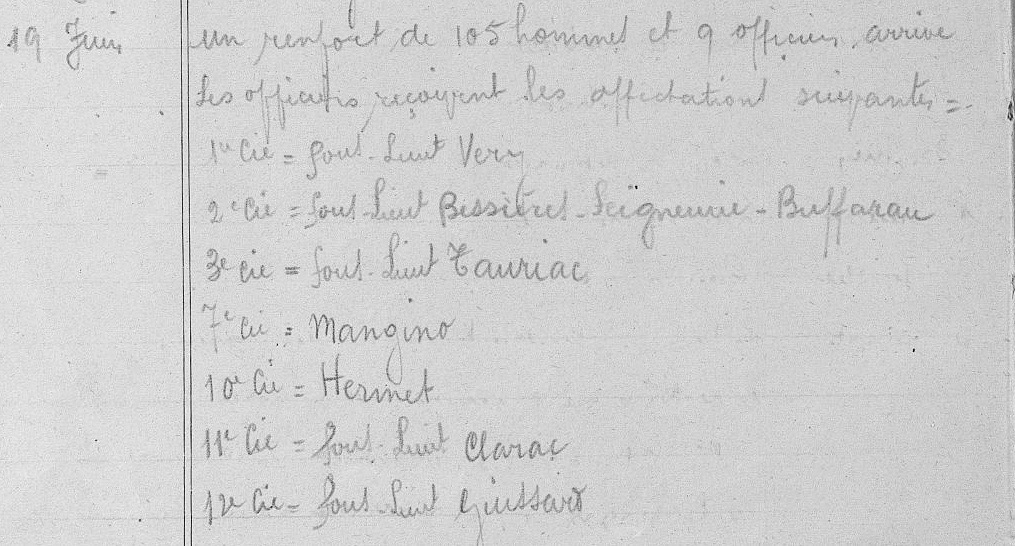 19 Juin un renfort de 105 hommes et 9 officiers arrive
Les officiers reçoivent les affectations suivantes =
1re Cie = Sous-Lieut Very
2e Cie = Sous-Lieut Bessières - Seigneurie - Buffarau
3e Cie = Sous-Lieut Tauriac
7e Cie = Mangino
10e Cie = Hermet
11e Cie = Sous-Lieut Clarac
12e Cie = Sous-Lieut